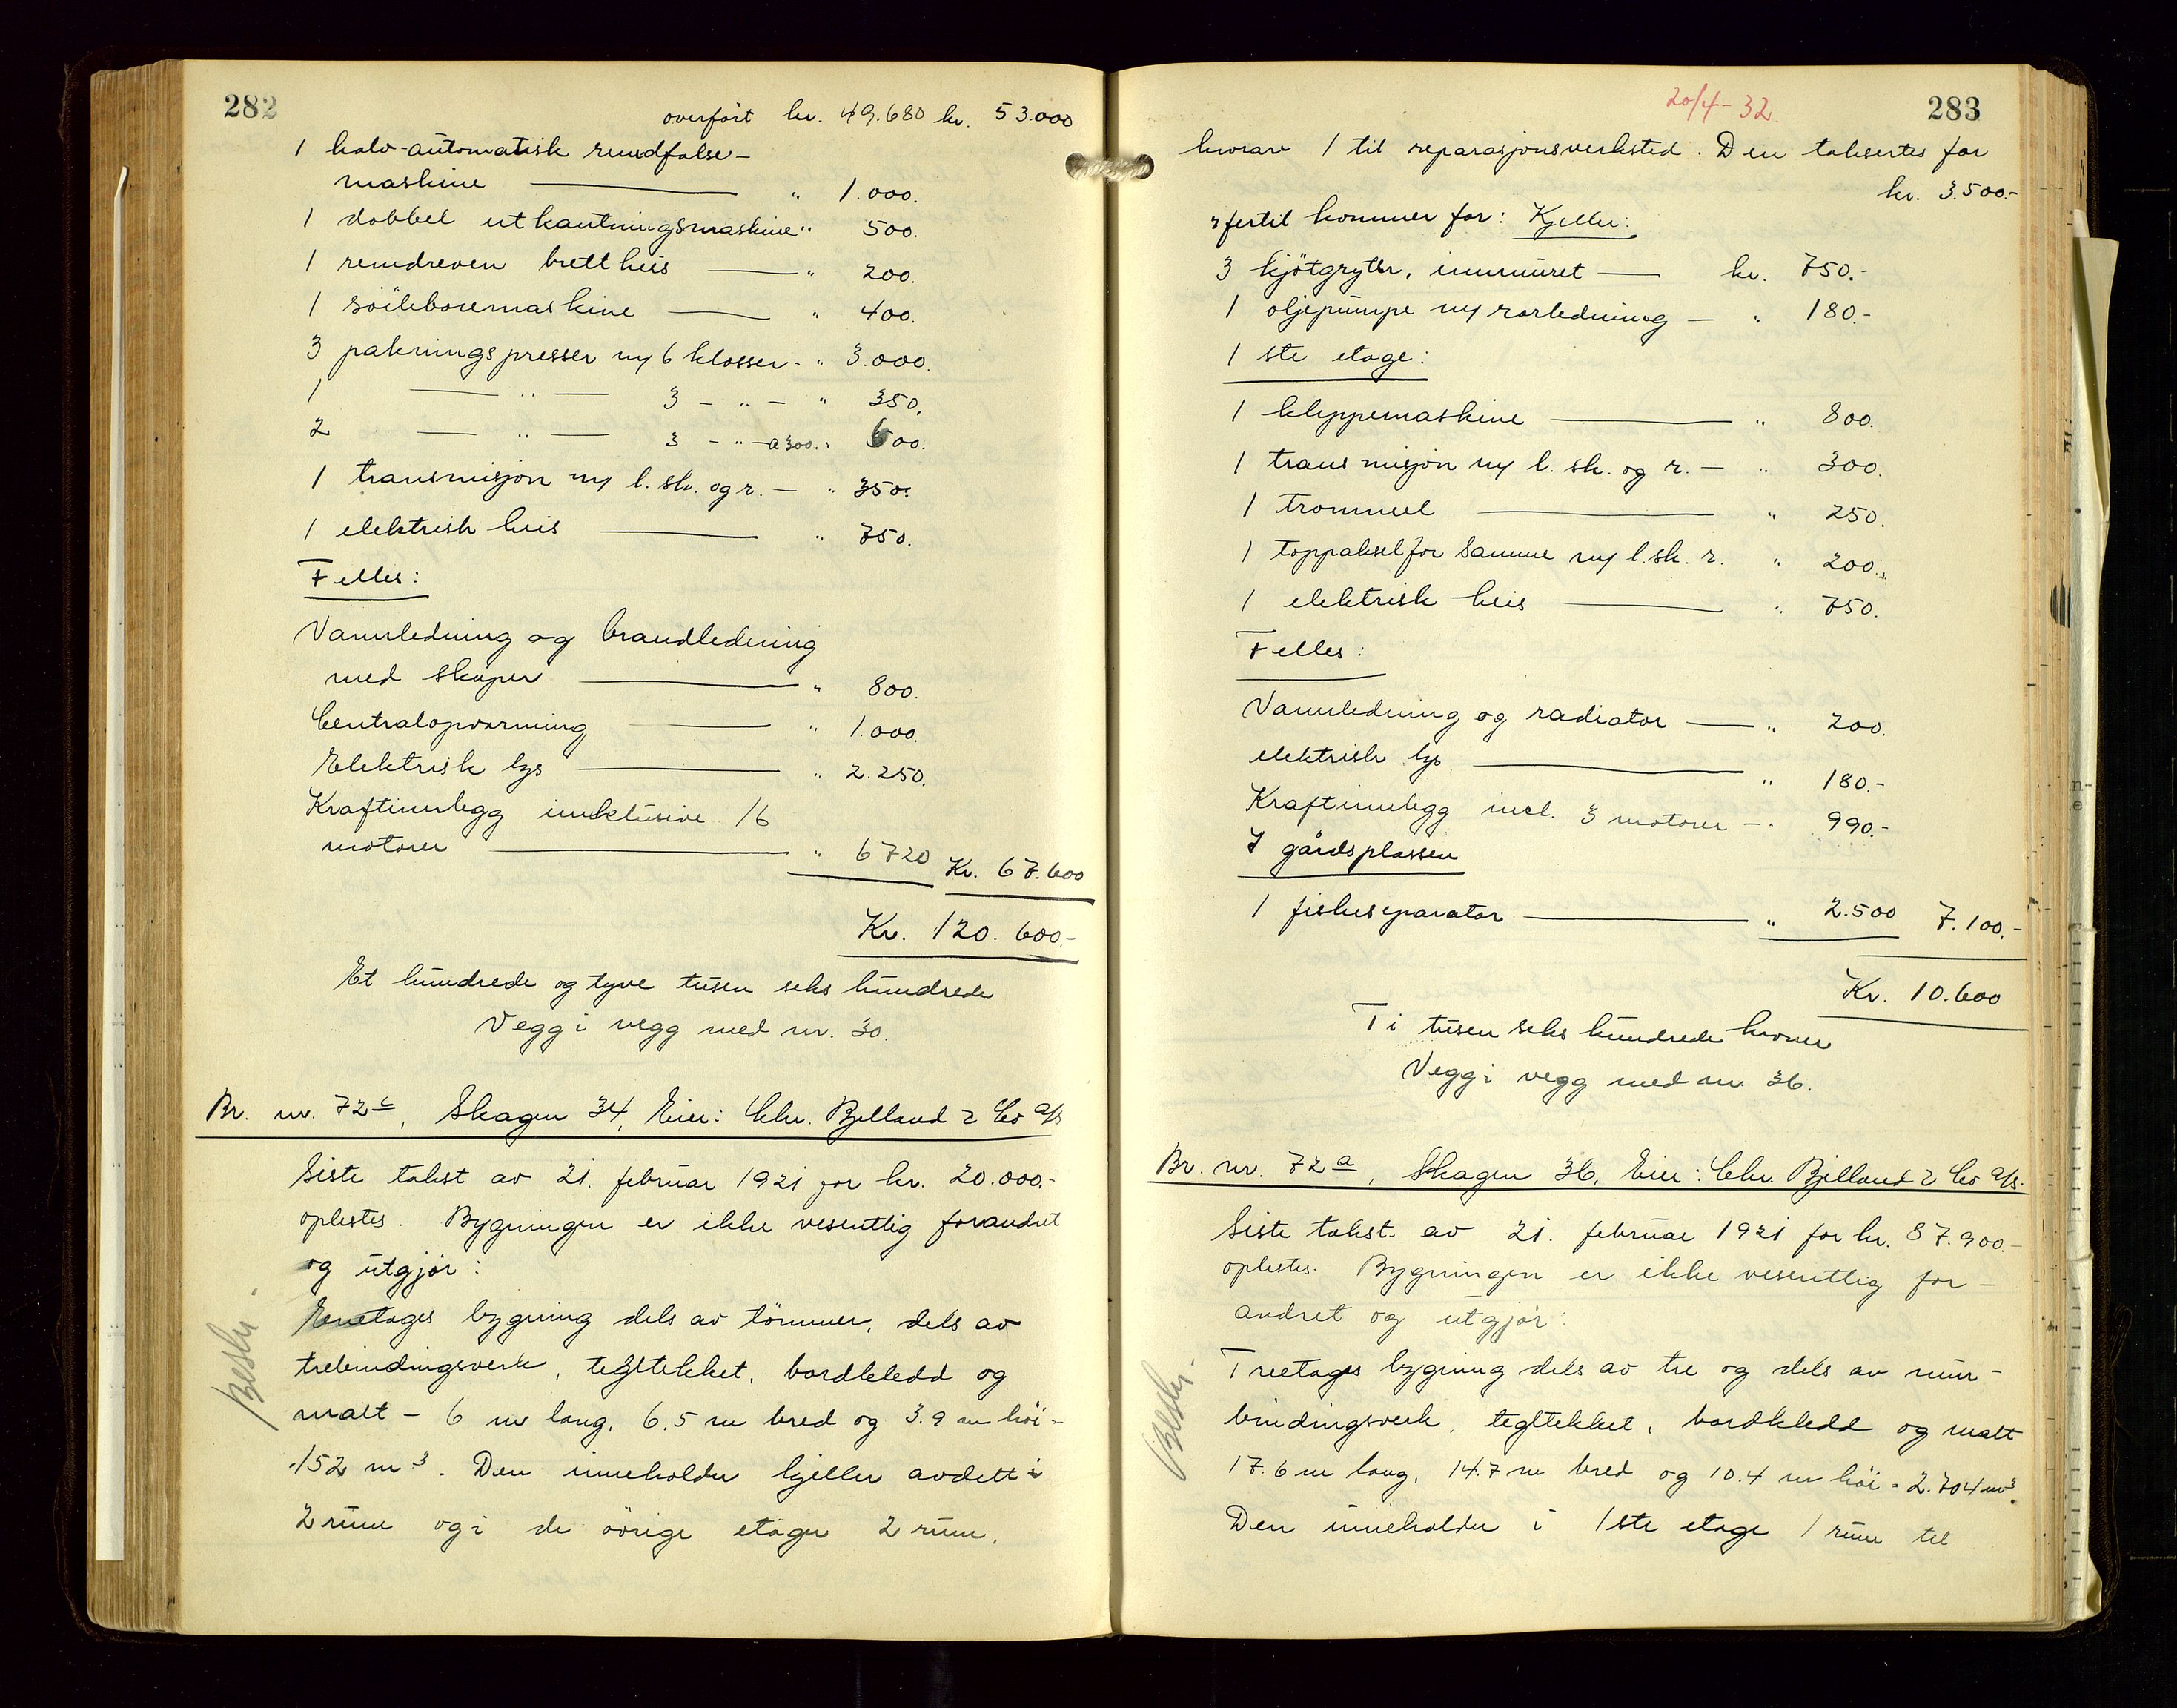 282
overført kr. 49.680 kr. 53.000
1 halv-automatisk rundfalse-
maskine " 1.000.
1 dobbel utkantningsmaskine " 500.
1 remdreven brettheis " 200.
1 söileboremaskine " 400.
3 pakningspresser m/ 6 klosser - " 3.000.
1 — " — 3 - " - " 350.
2 — " — 3 - " - a 300. " 600.
1 transmisjon m/ l. sk. og r. — " 350.
1 elektrisk heis " 750.
Felles:
Vannledning og brandledning
med skaper " 800.
Centralopvarming " 1.000.
Elektrisk lys " 2.250.
Kraftinnlegg inklusive 16
motorer " 6720 Kr. 67.600
Kr. 120.600.-
Et hundrede og tyve tusen seks hundrede
Vegg i vegg med nr. 30.
Br. nr. 72c, Skagen 34, Eier: Chr. Bjelland & Co a/s
Siste takst av 21. februar 1921 for kr. 20.000.-
oplestes. Bygningen er ikke vesentlig forandret
og utgjör:
Enetages bygning dels av tömmer, dels av
trebindingsverk, tegltekket, bordkledd og
malt - 6 m lang, 6.5 m bred og 3.9 m höi -
152 m3. Den inneholder kjeller avdelt i
2 rum og i de övrige etager 2 rum,
Beskr.
20/4-32.
283
hvorav 1 til reparasjonsverksted. Den takseres for
kr. 3.500.-
Hertil kommer for: Kjeller:
3 kjötgryter, innmuret — kr. 750.-
1 oljepumpe m/ rörledning — " 180.-
1ste etage:
1 klippemaskine " 800.
1 transmisjon m/ l. sk. og r. — " 300.
1 trommel " 250.
1 toppaksel for samme m/ l. sk. r. " 200.
1 elektrisk heis " 750.
Felles:
Vannledning og radiator — " 200.
elektrisk lys " 180.-
Kraftinnlegg incl. 3 motorer — " 990.-
I gårdsplassen
1 fiskeseparator " 2.500 7.100.-
Kr. 10.600
Ti tusen seks hundrede kroner
Vegg i vegg med nr. 36.
Br. nr. 72a, Skagen 36, Eier: Chr. Bjelland & Co a/s.
Siste takst av 21. februar 1921 for kr. 87.900.-
oplestes. Bygningen er ikke vesentlig for-
andret og utgjör:
Treetages bygning dels av tre og dels av mur-
bindingsverk, tegltekket, bordkledd og malt
17.6 m lang, 14.7 m bred og 10.4 m höi - 2.704 m3.
Den inneholder i 1ste etage 1 rum til
Beskr.